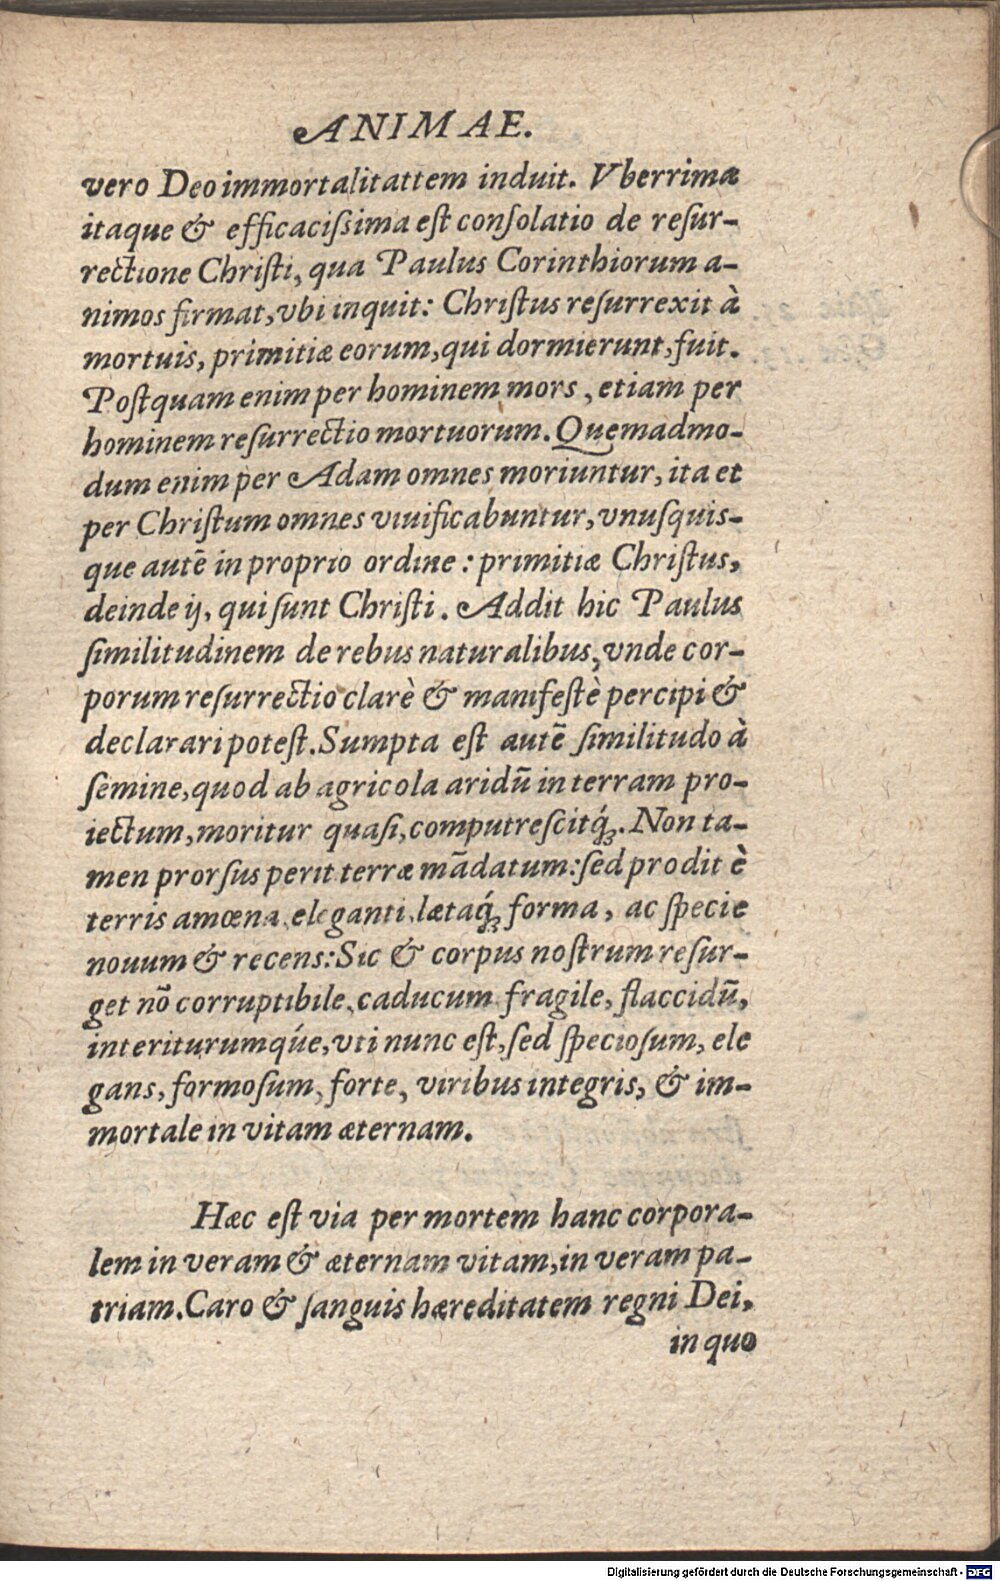 ANIMAE.
vero Deo immortalitattem induit. Vberrimæ
itaque & efficaciſsima eſt conſolatio de reſur-
rectione Chriſti, qua Paulus Corinthiorum a-
nimos firmat, vbi inquit: Chriſtus reſurrexit à
mortuis, primitiæ eorum, qui dormierunt, fuit.
Poſtquam enim per hominem mors, etiam per
hominem reſurrectio mortuorum. Quemadmo-
dum enim per Adam omnes moriuntur, ita et
per Chriſtum omnes viuificabuntur, vnuſquis-
que autē in proprio ordine: primitiæ Chriſtus,
deinde ij, qui ſunt Chriſti. Addit hic Paulus
ſimilitudinem de rebus naturalibus, vnde cor-
porum reſurrectio clarè & manifeſtè percipi &
declarari poteſt. Sumpta eſt autē ſimilitudo à
ſemine, quod ab agricola aridū in terram pro-
iectum, moritur quaſi, computreſcitq́;. Non ta-
men prorſus perit terræ mādatum: ſed prodit è
terris amœna, eleganti, lætaq́; forma, ac ſpecie
nouum & recens: Sic & corpus noſtrum reſur-
get nō corruptibile, caducum fragile, flaccidū,
interiturumqúe, vti nunc eſt, ſed ſpecioſum, ele
gans, formoſum, forte, viribus integris, & im-
mortale in vitam æternam.
Hæc eſt via per mortem hanc corpora-
lem in veram & æternam vitam, in veram pa-
triam. Caro & ſanguis hæreditatem regni Dei,
in quo
Digitalisierung gefördert durch die Deutsche Forschungsgemeinschaft - DFG